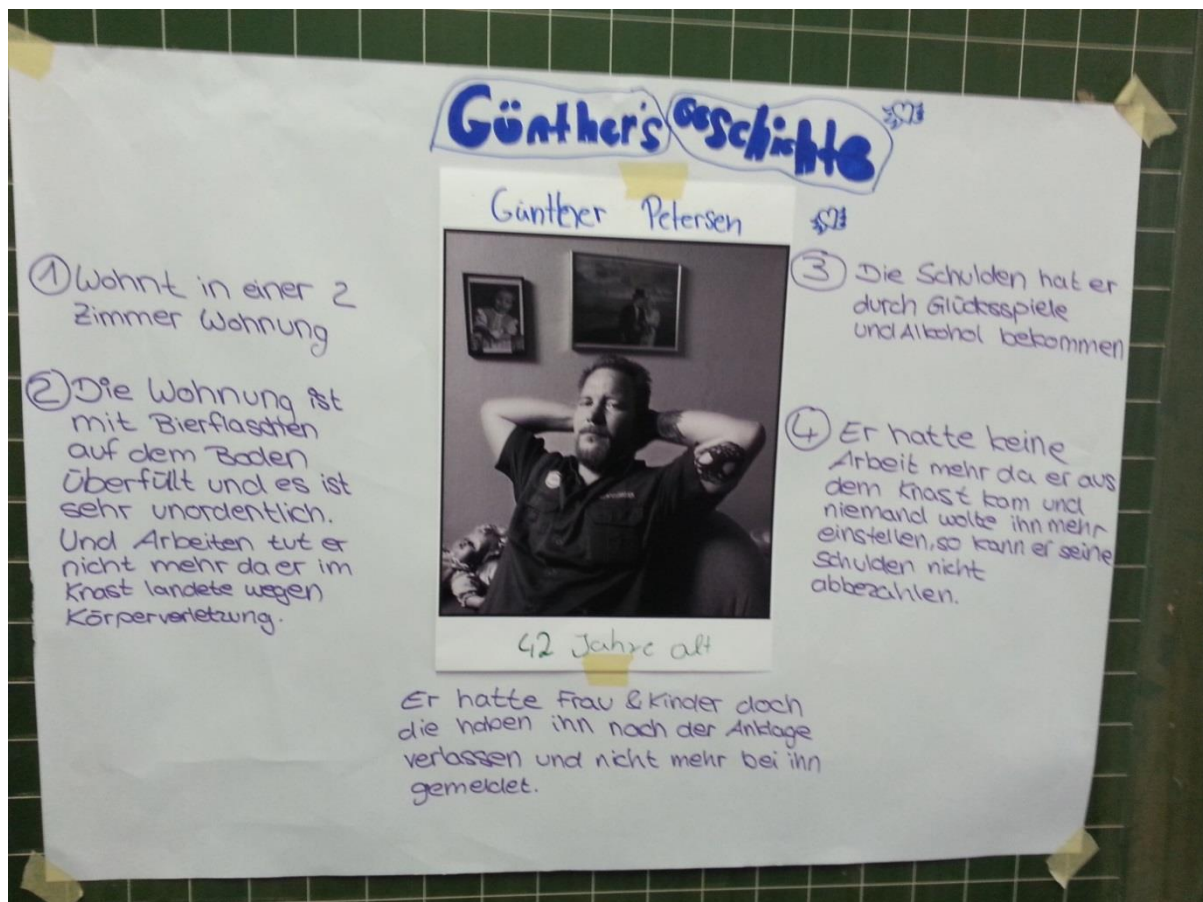 Günther's Geschichte
Günther Petersen
① Wohnt in einer 2
Zimmer Wohnung
② Die Wohnung ist
mit Bierflaschen
auf dem Boden
überfüllt und es ist
sehr unordentlich.
Und Arbeiten tut er
nicht mehr da er im
Knast landete wegen
Körperverletzung.
③ Die Schulden hat er
durch Glücksspiele
und Alkohol bekommen
④ Er hatte keine
Arbeit mehr da er aus
dem Knast kam und
niemand wolte ihn mehr
einstellen, so kann er seine
Schulden nicht
abbezahlen.
42 Jahre alt
Er hatte Frau & Kinder doch
die haben ihn nach der Anklage
verlassen und nicht mehr bei ihn
gemeldet.